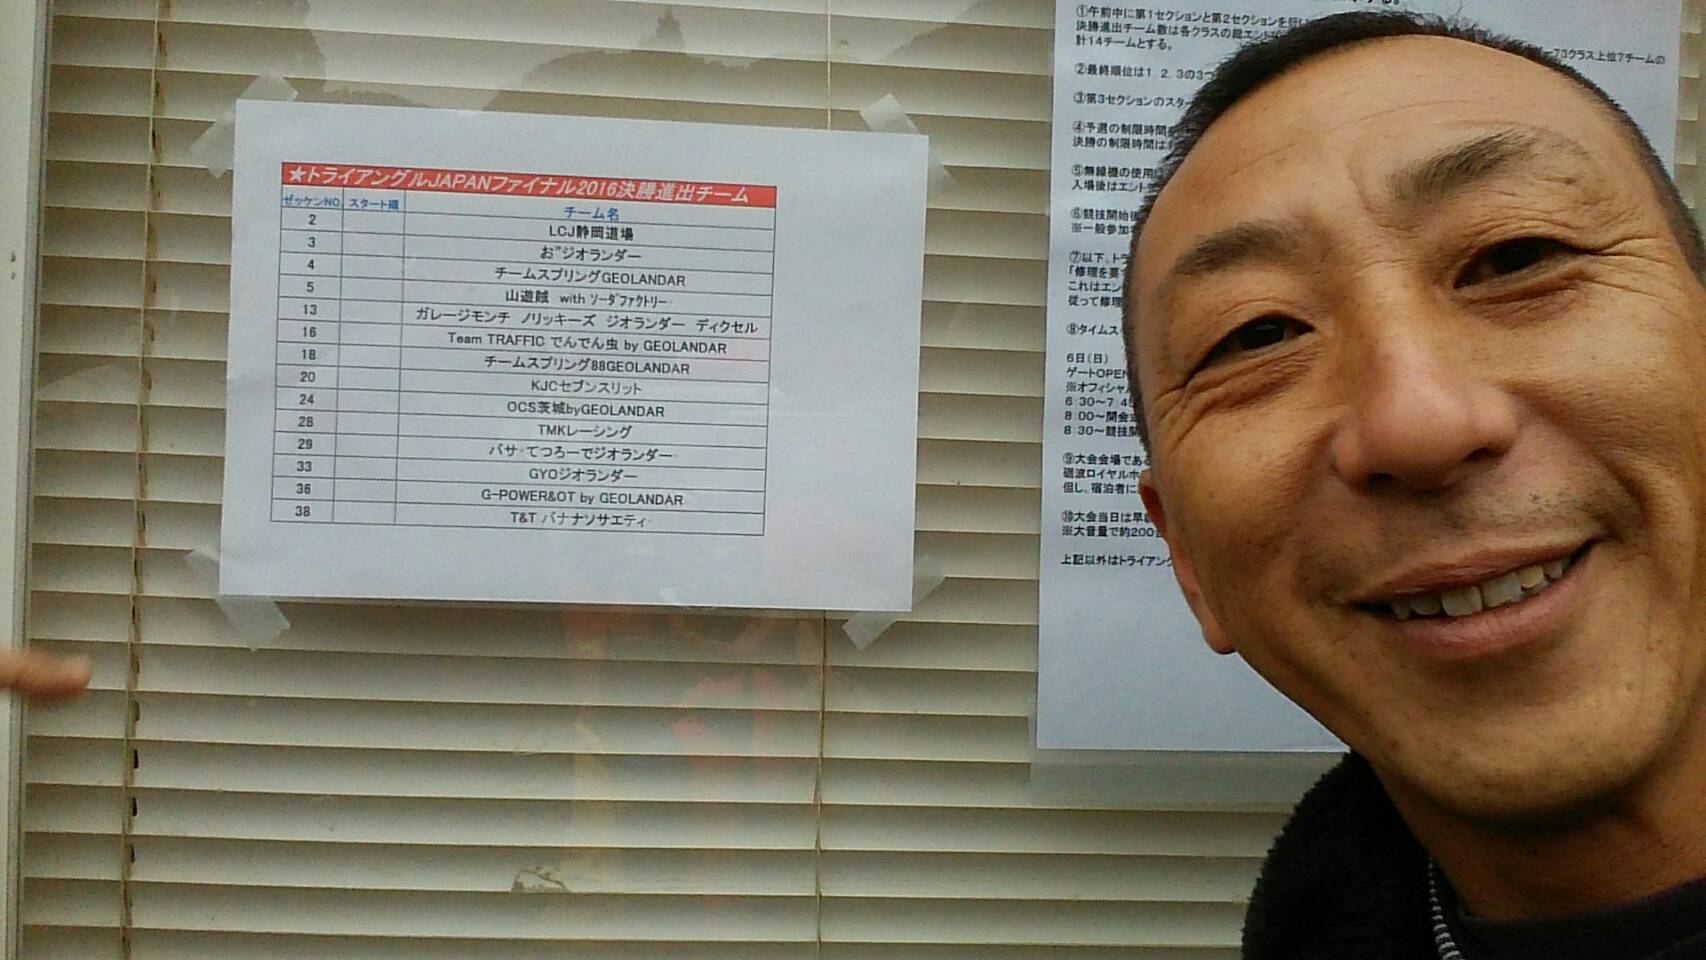 ★トライアングルJAPANファイナル2016決勝進出チーム
ゼッケンNO. スタート順 チーム名
2 LCJ静岡道場
3 お"ジオランダー
4 チームスプリングGEOLANDAR
5 山遊賊 with ソーダファクトリー
13 ガレージモンチ ノリッキーズ ジオランダー ディクセル
16 Team TRAFFIC でんでん虫 by GEOLANDAR
18 チームスプリング88GEOLANDAR
20 KJCセブンスリット
24 OCS茨城byGEOLANDAR
28 TMKレーシング
29 バサ・てつろーでジオランダー
33 GYOジオランダー
36 G-POWER&OT by GEOLANDAR
38 T&T バナナソサエティ
①午前中に第1セクションと第2セクションを行い
決勝進出チーム数は各クラスの総エント 73クラス上位7チームの
計14チームとする。
②最終順位は1.2.3の3つ
③第3セクションのスター
④予選の制限時間
決勝の制限時間は
⑤無線機の使用
入場後はエント
⑥競技開始後
※一般参加
⑦以下、トラ
「修理を要
これはエン
従って修理
⑧タイムス
6日(日)
ゲートOPEN
※オフィシャル
6:30～7:45
8:00～開会式
8:30～競技開
⑨大会会場である
砺波ロイヤルホ
但し、宿泊者に
⑩大会当日は早朝
※大音量で約200
上記以外はトライアング